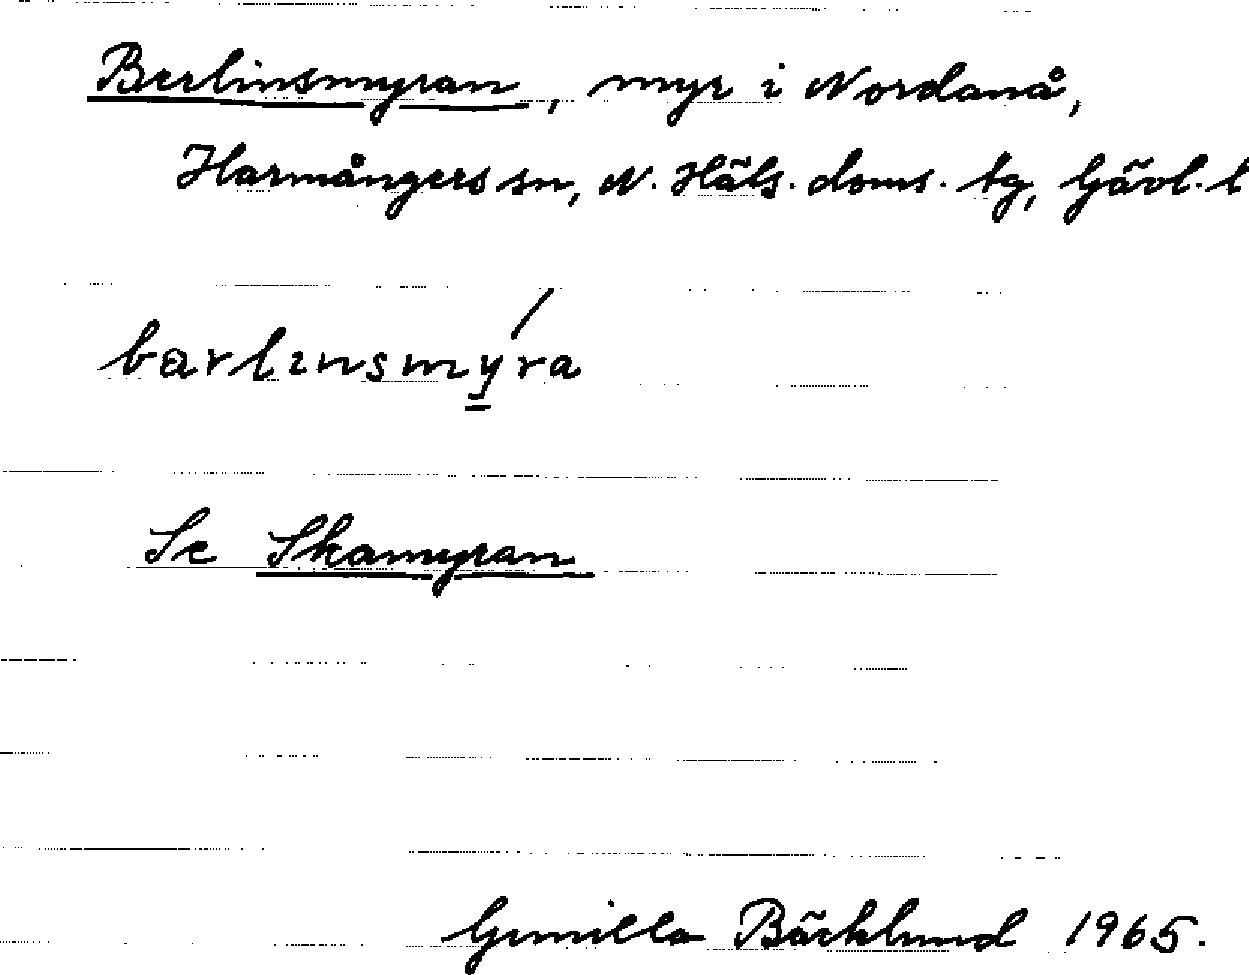 Berlinsmyran, myr i Nordanå,
Harmångers sn, N. Häls. doms. tg, Gävl. l
barlinsmy̲ra
Se Skamyran
Gunilla Bäcklund 1965.